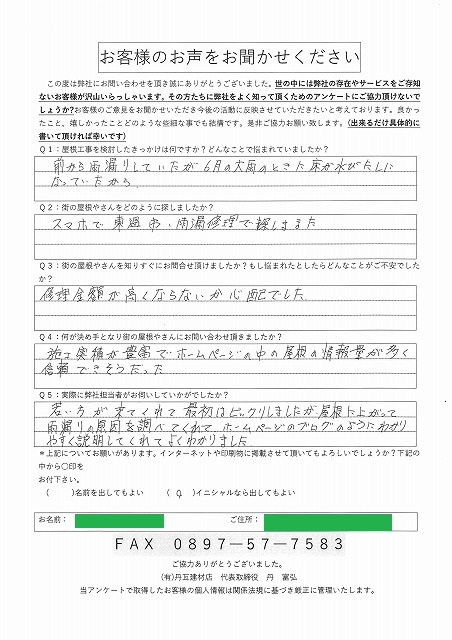 お客様のお声をお聞かせください
この度は弊社にお問い合わせを頂き誠にありがとうございました。世の中には弊社の存在やサービスをご存知
ないお客様が沢山いらっしゃいます。その方たちに弊社をよく知って頂くためのアンケートにご協力頂けないで
しょうか？お客様のご意見をお聞かせいただき今後の活動に反映させていただきたいと考えております。良かっ
たこと、嬉しかったことどのような些細な事でも結構です。是非ご協力お願い致します。（出来るだけ具体的に
書いて頂ければ幸いです）
Ｑ１：屋根工事を検討したきっかけは何ですか？どんなことで悩まれていましたか？
前から雨漏りしていたが6月の大雨のときに床が水びたしに
なっていたから
Ｑ２：街の屋根やさんをどのように探しましたか？
スマホで東温市、雨漏修理で探しました
Ｑ３：街の屋根やさんを知りすぐにお問合せ頂けましたか？もし悩まれたとしたらどんなことがご不安でした
か？
修理金額が高くならないか心配でした
Ｑ４：何が決め手となり街の屋根やさんにお問い合わせ頂きましたか？
施工実績が豊富でホームページの中の屋根の情報量が多く
信頼できそうだった
Ｑ５：実際に弊社担当者がお伺いしていかがでしたか？
若い方が来てくれて最初はビックリしましたが屋根に上がって
雨漏りの原因を調べてくれて、ホームページのブログのようにわかり
やすく説明してくれてよくわかりました
＊上記についてお願いがあります。インターネットや印刷物に掲載させて頂いてもよろしいでしょうか？下記の
中から〇印を
お付下さい。
（　　）名前を出してもよい　（〇）イニシャルなら出してもよい
お名前：　ご住所：
ＦＡＸ　０８９７－５７－７５８３
ご協力ありがとうございました。
(有)丹瓦建材店　代表取締役　丹　富弘
当アンケートで取得したお客様の個人情報は関係法規に基づき厳正に管理いたします。